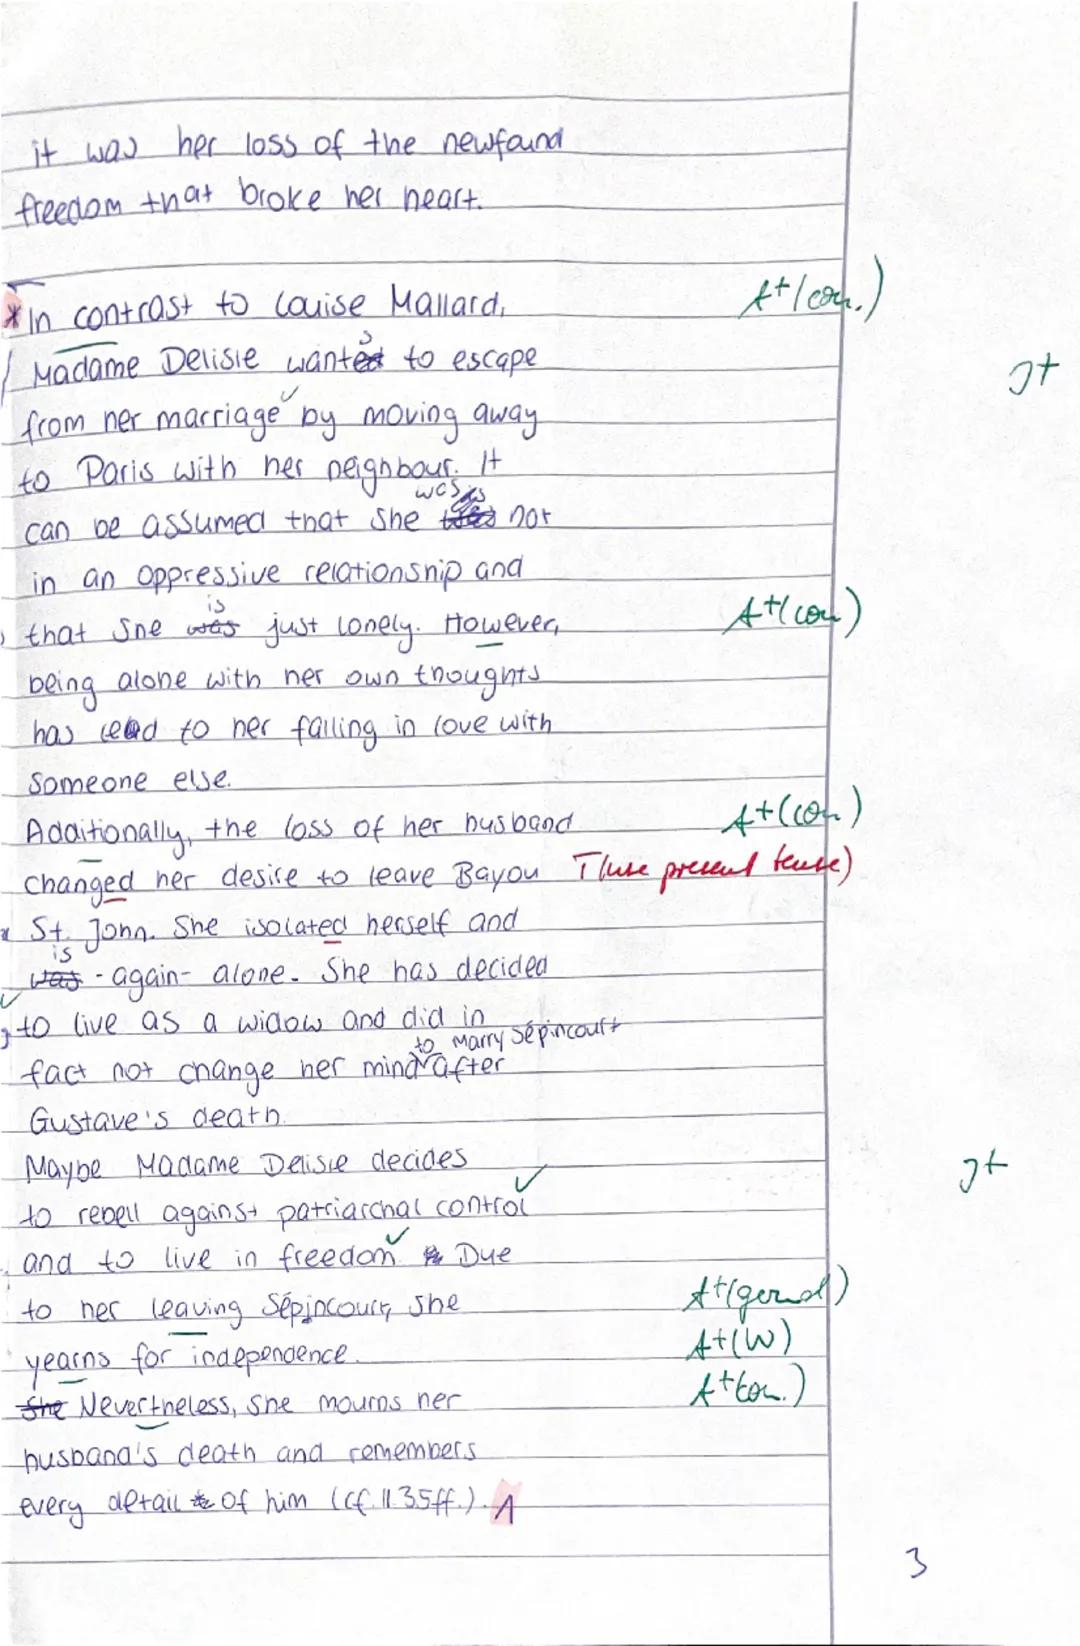 it was her loss of the newfound
freedom that broke her heart.
* In contrast to Louise Mallard, A+(con.)
Madame Delisle wants to escape J+
from her marriage by moving away
to Paris with her neighbour. It
can be assumed that she was not
in an oppressive relationship and
that she is just lonely. However, A+(con)
being alone with her own thoughts
has lead to her falling in love with
someone else.
Additionally, the loss of her husband A+(con)
changed her desire to leave Bayou T(use present tense)
St. John. She isolated herself and
is - again - alone. She has decided
to live as a widow and did in
fact not change her mind to marry Sépincourt after
Gustave's death.
Maybe Madame Delisle decides J+
to rebell against patriarchal control
and to live in freedom. Due
to her leaving Sépincourt, she A+(gerund)
yearns for independence. A+(W)
Nevertheless, she mourns her A+(con.)
husband's death and remembers
every detail of him (cf. ll. 35ff.).
3